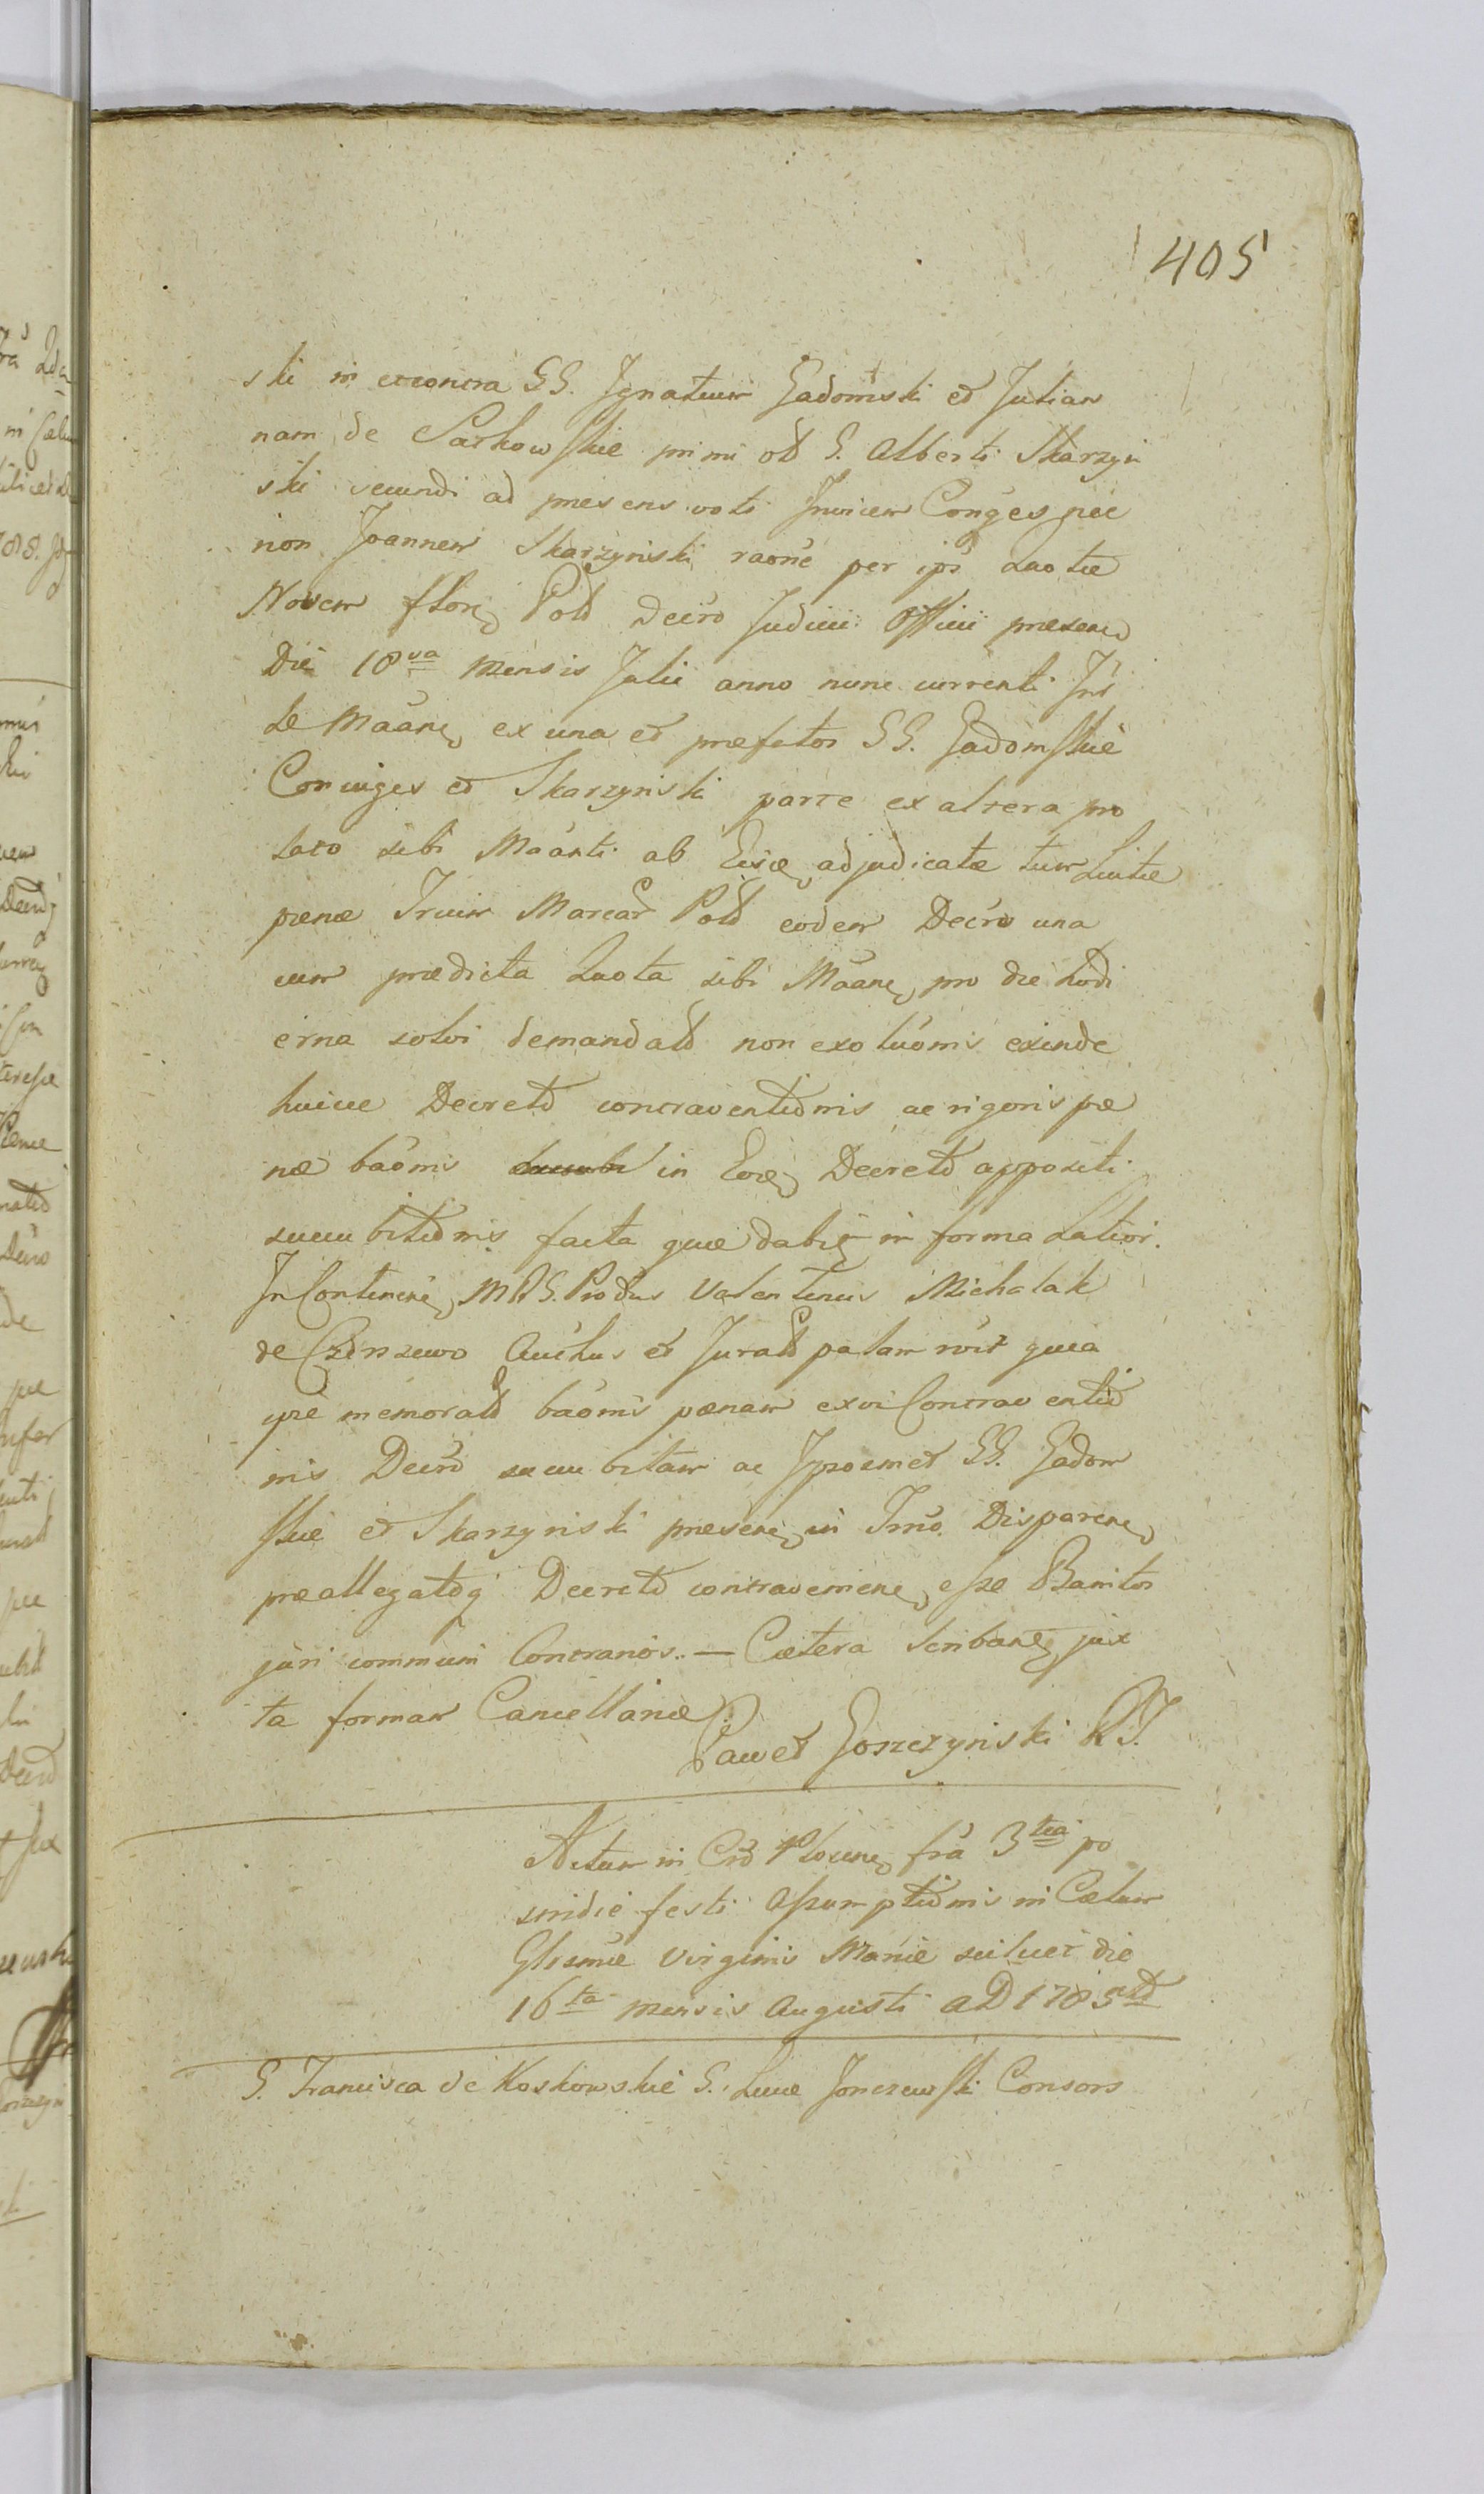 405
ski in et contra GG. Ignatium Gadomski et Julian
nam de Sarkowskie primi olt G. Alberti Skarzyn
ski secundi ad presens voti Invicem Conges nec
non Joannem Skarzyński raõne per ips quotæ
Novem floren Polt Decro Judicii Officii presen
Die 18va mensis Julii anno nunc currenti Int
se Maane ex una et præfatos GG. Gadomskie
Coniuges et Skarzynski parte ex altera pro
lato sibi Maanti ab Eisæ adjudicatæ tum Luitæ
pænæ Trium Marcar Polt eodem Decro una
cum prædicta Quota sibi Maane pro die hodi
erna solvi demandatt non exoluõnis exinde
huicce Decretd contraventiõnis ac rigoris pæ
næ baõnis in Eoæ Decretd appositi
succubitiõnis facta quæ dabit in forma Latior.
In Continen MRG. Produs Valentinus Michalak
de Auchus et Juratt palam rõit quia
ipse memoratt baõnis pænam ex vi Contraventiõ
nis Decrõ succubitam ac Ipsosmet GG. Gadom
skie et Skarzynski presen in Trnõ. Disparen
præallegatoq Decretd contravenien esse Banitos
juri communi Contrarios. — Cætera Scribane jux
ta formam Cancellariæ
Paweł Goszczyński RT.
Actum in Crõ Plocen fra 3tia po
stridie festi Assumptiõnis in Cælum
Glosmæ Virginis Mariæ scilicet die
16ta mensis Augusti AD 1785td
G. Francisca de Koskowskie G. Lucæ Jonczewski Consors